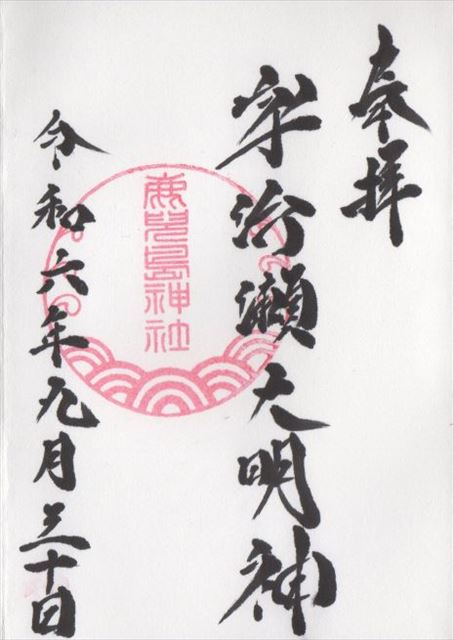 奉拝
宇治瀬大明神
鹿児島神社
令和六年九月三十日